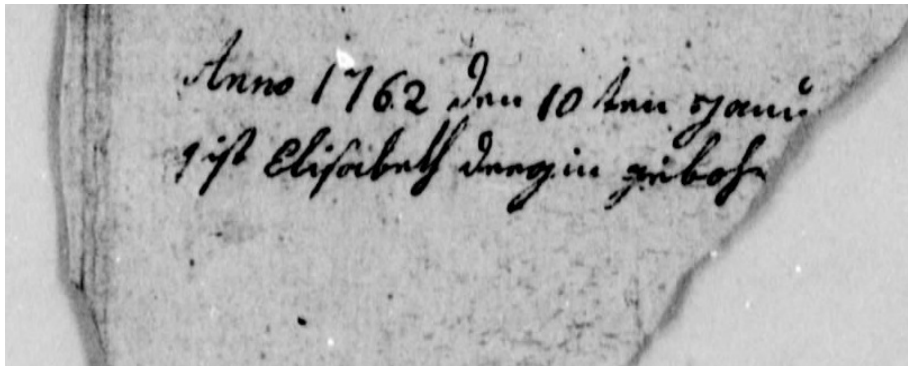 Anno 1762 den 10 ten Janu
ist Elisabeth deegin gebohr